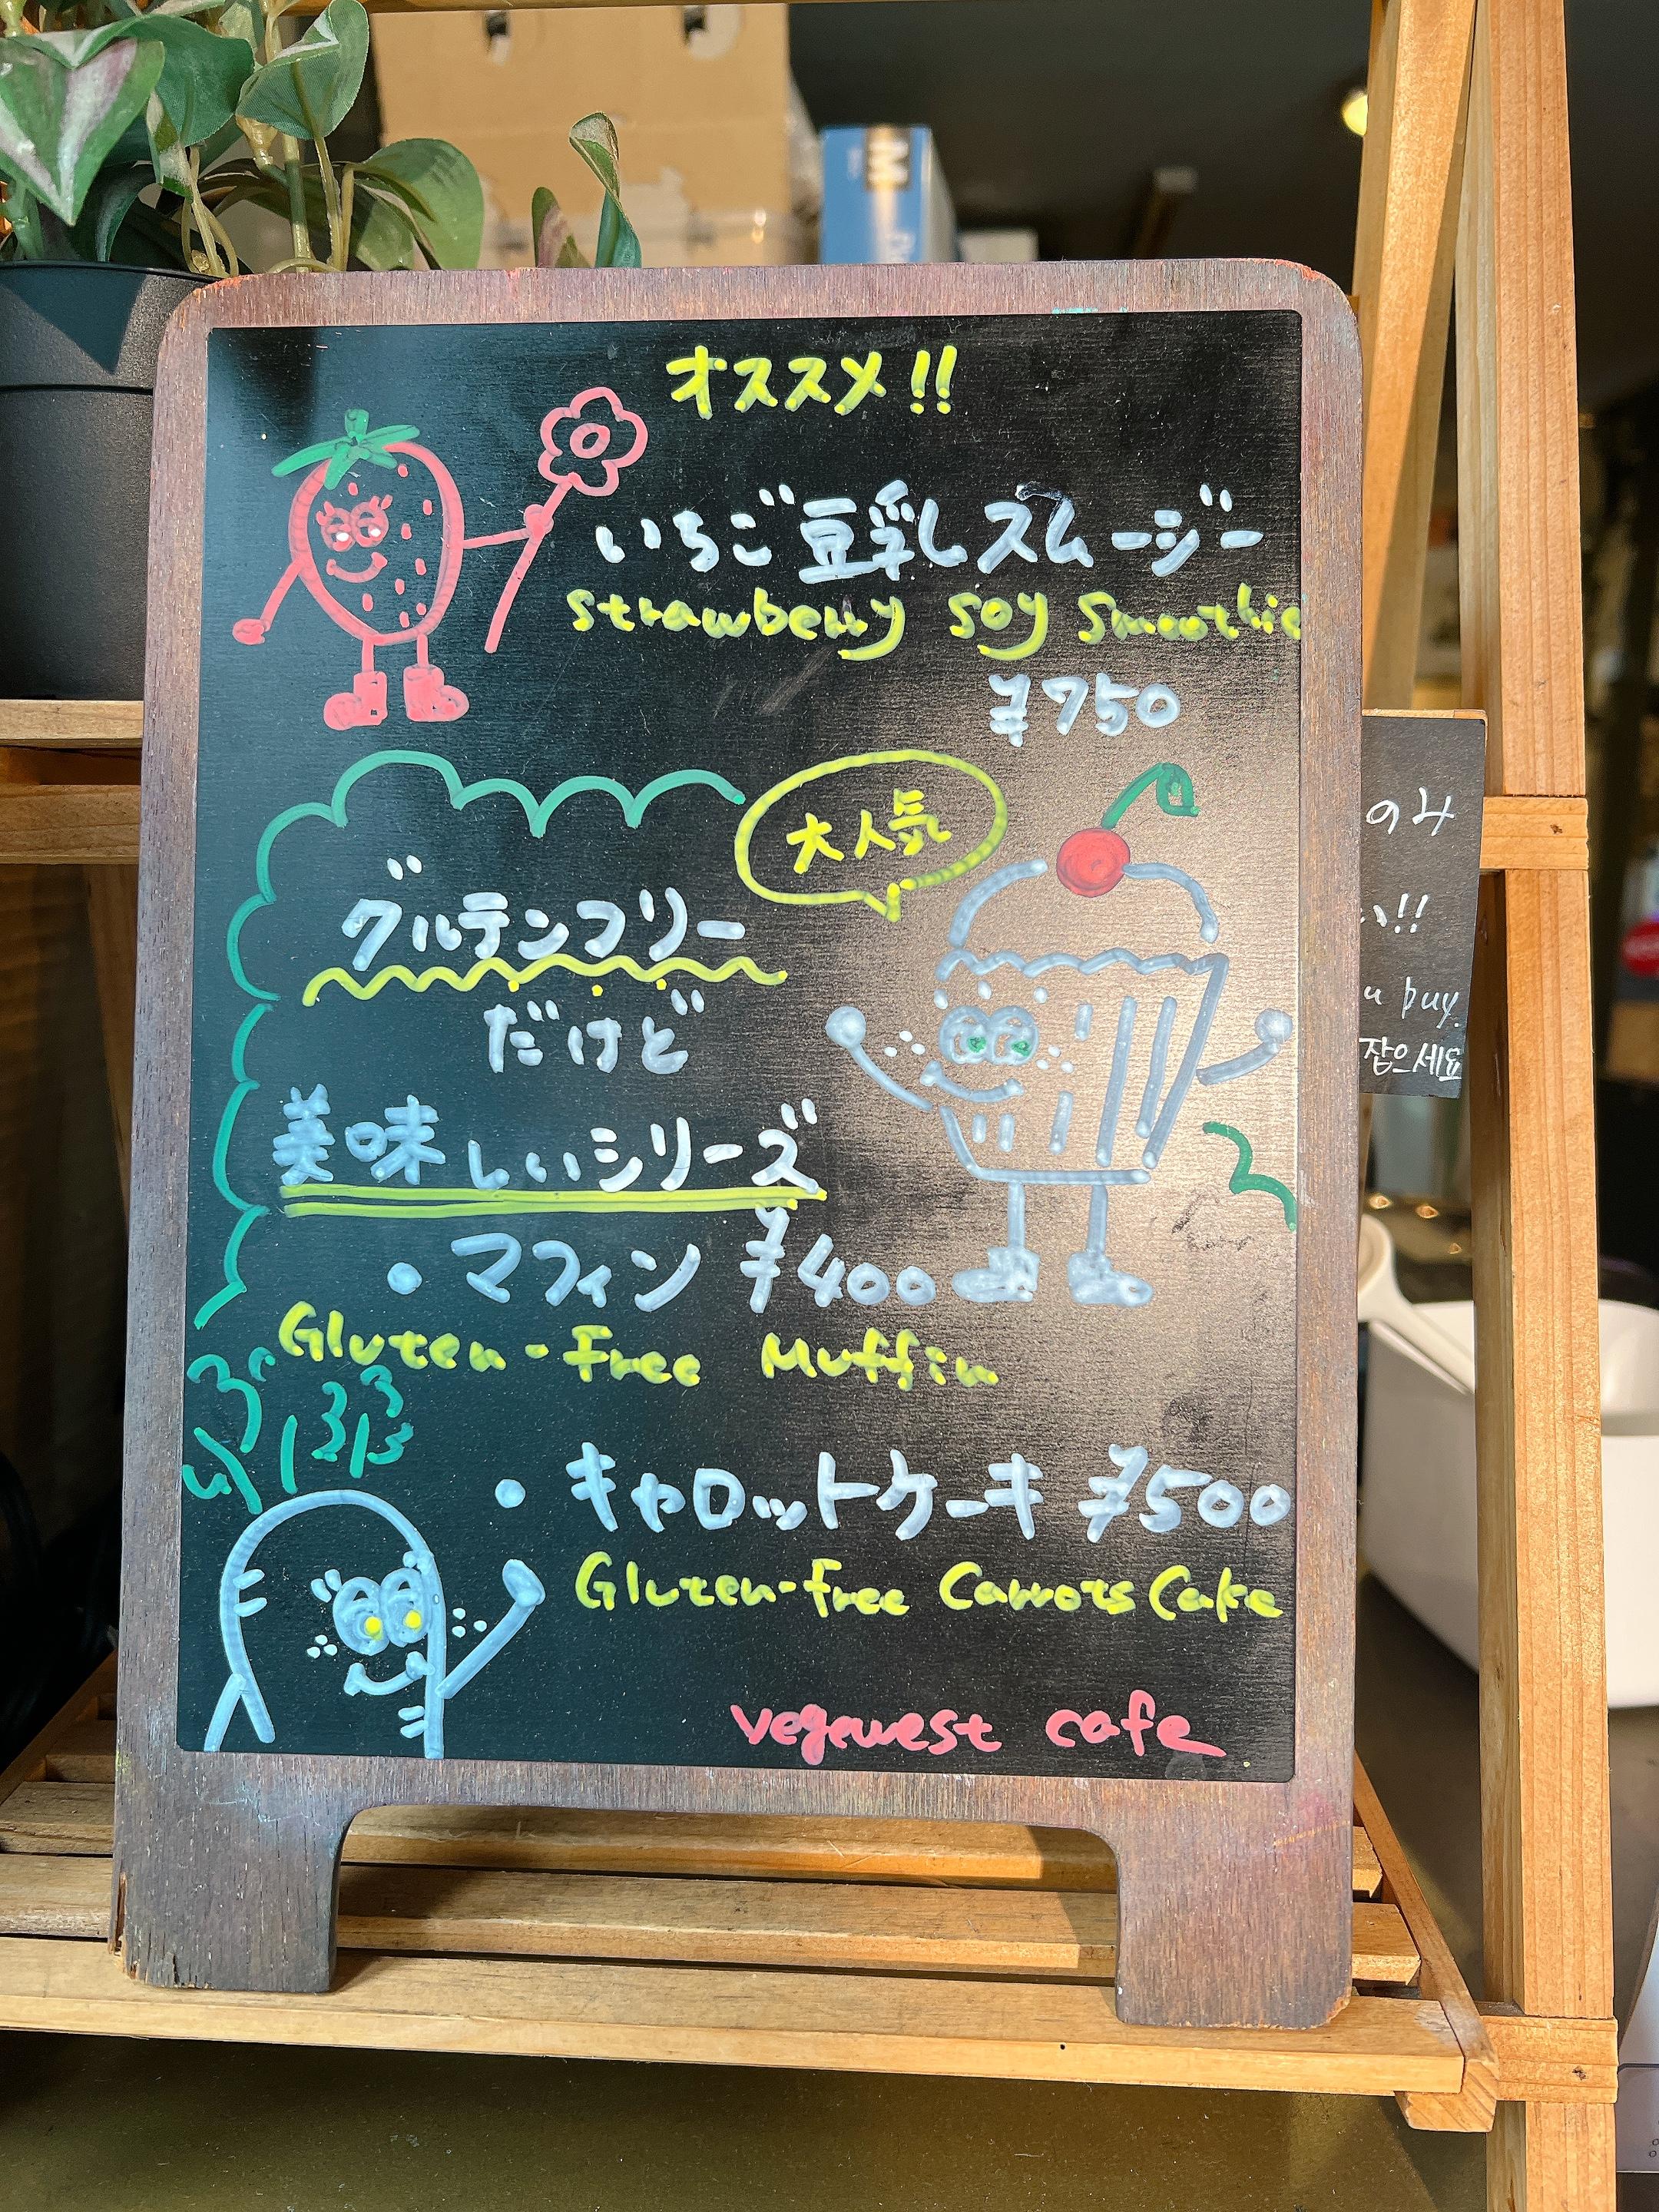 オススメ!!
いちご豆乳スムージー
Strawberry Soy Smoothie
¥750
大人気
グルテンフリー
だけど
美味しいシリーズ
・マフィン ¥400
Gluten-Free Muffin
・キャロットケーキ ¥500
Gluten-free Carrots Cake
vegewest cafe
のみ
い!!
u buy.
잡으세요